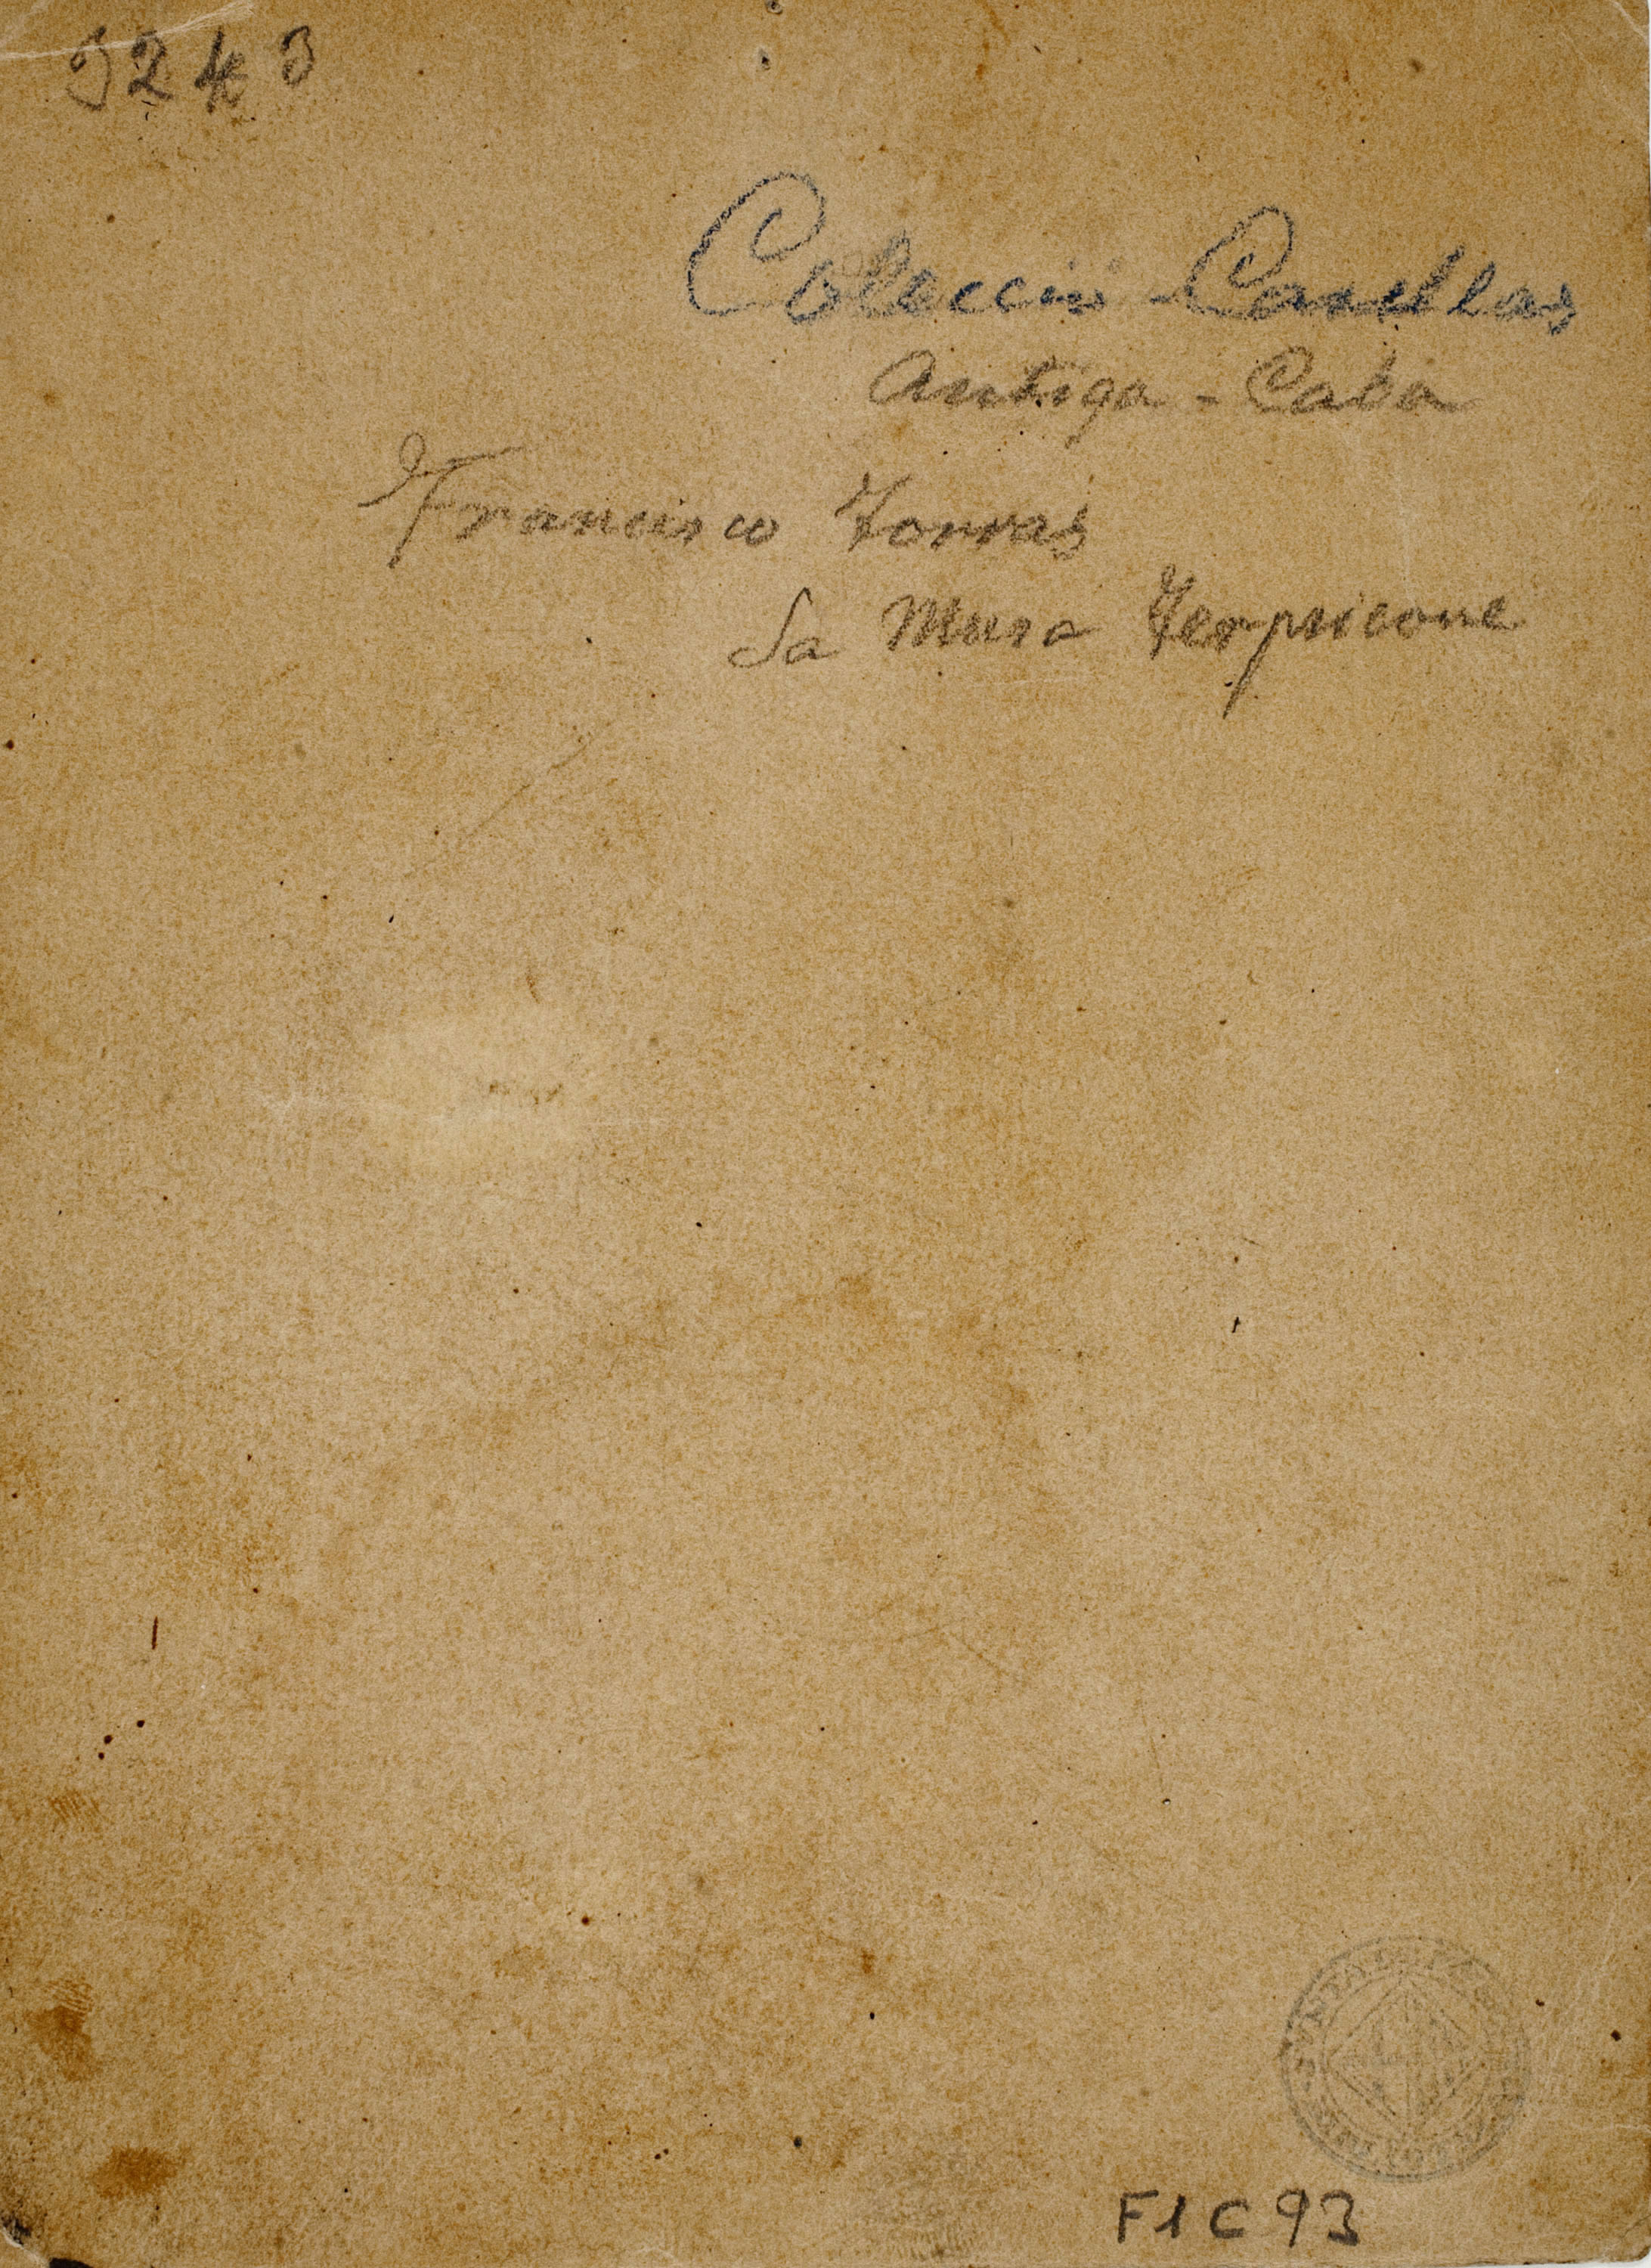 9243
Coleccio-Casellas
Antiga-Caba
Francisco Torras
La Musa Terpsicone
F1C93